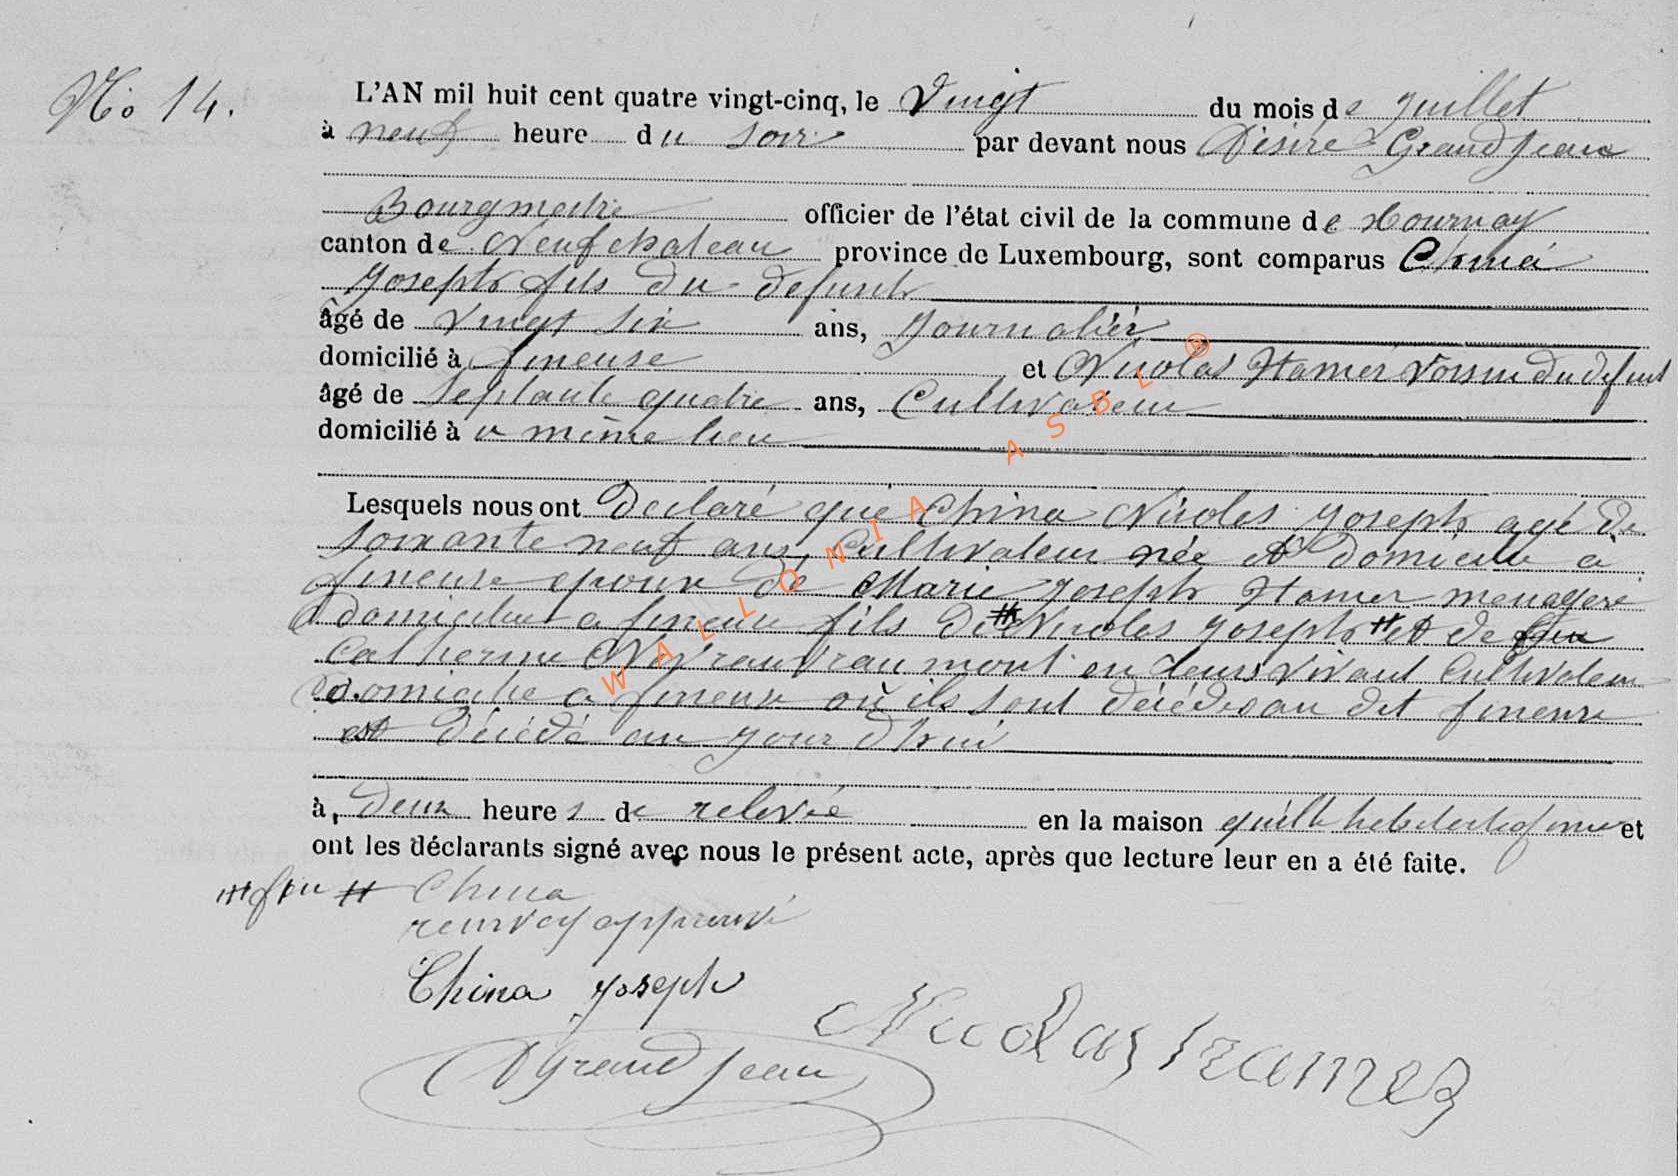 No 14.
L'AN mil huit cent quatre vingt-cinq, le Vingt du mois de Juillet
à neuf heure du soir par devant nous Désiré Grandjean
Bourgmestre officier de l'état civil de la commune de Tournay
canton de Neufchateau province de Luxembourg, sont comparus China
Joseph fils du defunt
âgé de Vingt six ans, Journalier
domicilié à fineuse et Nicolas Hamer Voisin du defunt
âgé de Septante quatre ans, Cultivateur
domicilié à u même lieu
Lesquels nous ont Declaré que China Nicolas Joseph agé de
soixante neuf ans, Cultivateur née et domicilié à
fineuse epoux de Marie Joseph Hamer menagere
domiciliée a fineuse fils de # Nicolas Joseph # et de feu
Catherine en leurs vivant Cultivateur
domicilie a fineuse où ils sont décédés au dit fineuse
est décédé au jour d'hui
à, deux heures de relevée en la maison qu'il et
ont les déclarants signé avec nous le présent acte, après que lecture leur en a été faite.
# feu # China
renvoy approuvé
China Joseph
Nicolas Hamer
D Grandjean
WALLONIA ASBL ®